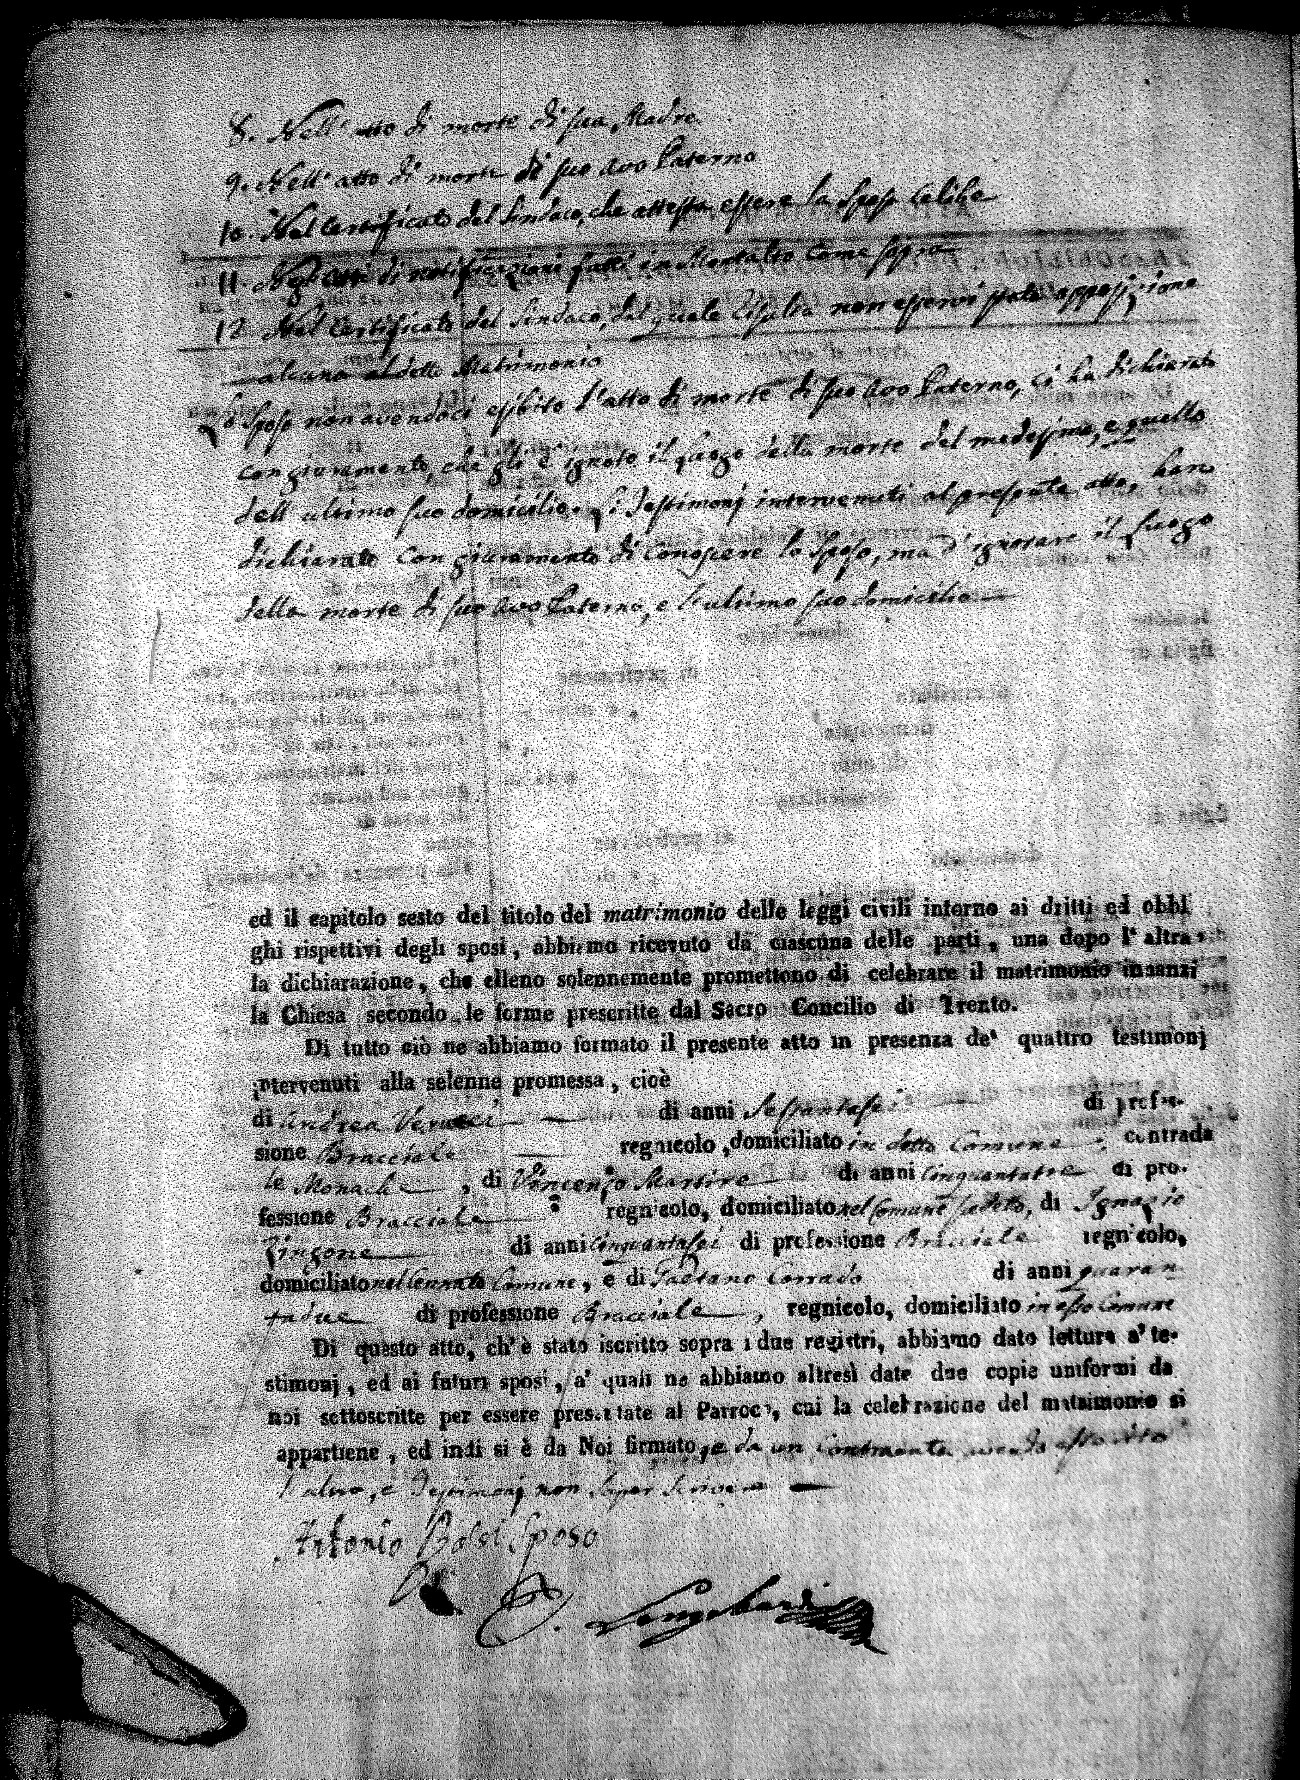 8. Nell' atto di morte di sua Madre
9. Nell' atto di morte di suo avo Paterno
10. Nel Certificato del Sindaco, che attesta essere lo Sposo Celibe
11. Negli atti di notificazioni fatti in Montalto come sopra
12. Nel Certificato del Sindaco, dal quale risulta non esservi stata opposizione
alcuna al detto Matrimonio
Lo Sposo non avendoci esibito l'atto di morte di suo avo Paterno, ci ha dichiarato
con giuramento, che gli è ignoto il luogo della morte del medesimo, e quello
dell' ultimo suo domicilio. Li Testimonj intervenuti al presente atto, han
dichiarato con giuramento di conoscere lo Sposo, ma d'ignorare il luogo
della morte di suo avo Paterno, e l'ultimo suo domicilio
ed il capitolo sesto del titolo del matrimonio delle leggi civili intorno ai dritti ed obbli
ghi rispettivi degli sposi, abbiamo ricevuto da ciascuna delle parti, una dopo l' altra
la dichiarazione, che elleno solennemente promettono di celebrare il matrimonio innanzi
la Chiesa secondo le forme prescritte dal Sacro Concilio di Trento.
Di tutto ciò ne abbiamo formato il presente atto in presenza de' quattro testimonj
intervenuti alla solenne promessa, cioè
di Andrea di anni Sessantasei di profes-
sione Bracciale regnicolo, domiciliato in detto Comune contrada
le Monache, di Vincenzo Martire di anni cinquantatre di pro-
fessione Bracciale regnicolo, domiciliato nel Comune sudetto, di Ignazio
Zingone di anni cinquantasei di professione Bracciale regnicolo,
domiciliato nel Comune, e di Gaetano Corrado di anni quaran
tadue di professione Bracciale, regnicolo, domiciliato in esso Comune
Di questo atto, ch' è stato iscritto sopra i due registri, abbiamo dato lettura a' te-
stimonj, ed ai futuri sposi, a' quali ne abbiamo altresì date due copie uniformi da
noi sottoscritte per essere presentate al Parroco, cui la celebrazione del matrimonio si
appartiene, ed indi si è da Noi firmato, e da un Contraente detto
l'altro, e Testimonj non saper scrivere
Antonio Sposo
Longobardi